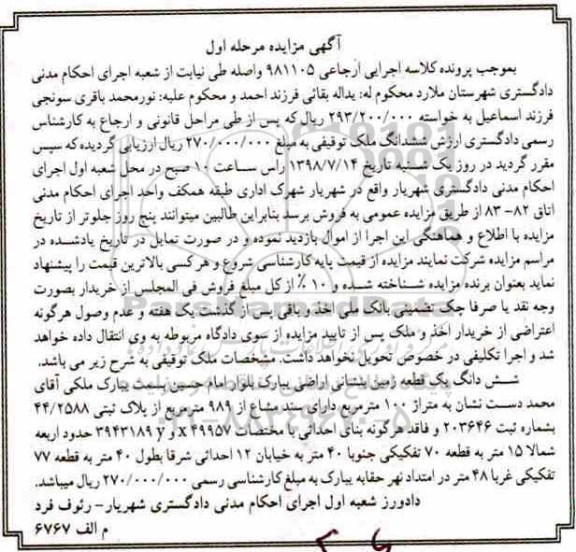 آگهی مزایده مرحله اول
بموجب پرونده کلاسه اجرایی ارجاعی ۹۸۱۱۰۵ واصله طی نیابت از شعبه اجرای احکام مدنی
دادگستری شهرستان ملارد محکوم له: یداله بقائی فرزند احمد و محکوم علیه: نورمحمد باقری سونجی
فرزند اسماعیل به خواسته ۲۹۳/۲۰۰/۰۰۰ ریال که پس از طی مراحل قانونی و ارجاع به کارشناس
رسمی دادگستری ارزش ششدانگ ملک توقیفی به مبلغ ۲۷۰/۰۰۰/۰۰۰ ریال ارزیابی گردیده که سپس
مقرر گردید در روز یک شنبه تاریخ ۱۳۹۸/۷/۱۴ راس ساعت ۱۰ صبح در محل شعبه اول اجرای
احکام مدنی دادگستری شهریار واقع در شهریار شهرک اداری طبقه همکف واحد اجرای احکام مدنی
اتاق ۸۲- ۸۳ از طریق مزایده عمومی به فروش برسد بنابراین طالبین میتوانند پنج روز جلوتر از تاریخ
مزایده با اطلاع و هماهنگی این اجرا از اموال بازدید نموده و در صورت تمایل در تاریخ یادشده در
مراسم مزایده شرکت نمایند مزایده از قیمت پایه کارشناسی شروع و هر کسی بالاترین قیمت را پیشنهاد
نماید بعنوان برنده مزایده شناخته شده و ۱۰ ٪ از کل مبلغ فروش فی المجلس از خریدار بصورت
وجه نقد یا صرفا چک تضمینی بانک ملی اخذ و باقی پس از گذشت یک هفته و عدم وصول هرگونه
اعتراضی از خریدار اخذ و ملک پس از تایید مزایده از سوی دادگاه مربوطه به وی انتقال داده خواهد
شد و اجرا تکلیفی در خصوص تحویل نخواهد داشت. مشخصات ملک توقیفی به شرح زیر می باشد.
شش دانگ یک قطعه زمین بشانی اراضی بیارک بلوار امام حسین بسمت بیارک ملکی آقای
محمد دست نشان به متراژ ۱۰۰ مترمربع دارای سند مشاع از ۹۸۹ مترمربع از پلاک ثبتی ۴۴/۲۵۸۸
بشماره ثبت ۲۰۳۶۴۶ و فاقد هرگونه بنای احداثی با مختصات x ۴۹۹۵۷ و y ۳۹۴۳۱۸۹ حدود اربعه
شمالا ۱۵ متر به قطعه ۷۰ تفکیکی جنوبا ۴۰ متر به خیابان ۱۲ احداثی شرقا بطول ۴۰ متر به قطعه ۷۷
تفکیکی غربا ۴۸ متر در امتداد نهر حقابه بیارک به مبلغ کارشناسی رسمی ۲۷۰/۰۰۰/۰۰۰ ریال میباشد.
دادورز شعبه اول اجرای احکام مدنی دادگستری شهریار- رئوف فرد
م الف ۶۷۶۷